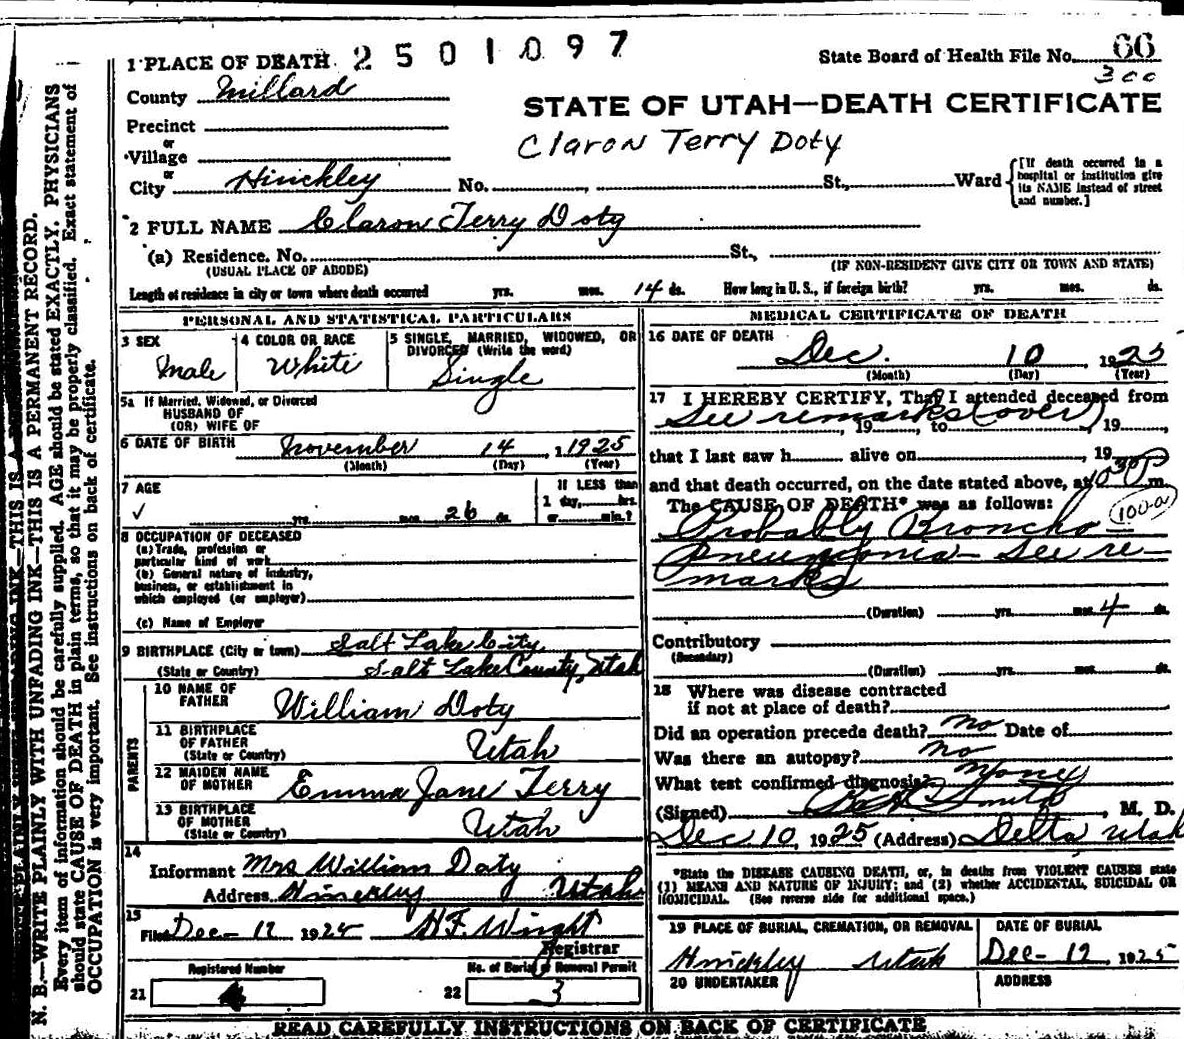 1 PLACE OF DEATH 2501097
State Board of Health File No. 66
300
County Millard
STATE OF UTAH—DEATH CERTIFICATE
Precinct
or
Village
Claron Terry Doty
or
City Hinckley No. , St., Ward
[If death occurred in a hospital or institution give its NAME instead of street and number.]
2 FULL NAME Claron Terry Doty
(a) Residence. No. St.,
(USUAL PLACE OF ABODE) (IF NON-RESIDENT GIVE CITY OR TOWN AND STATE)
Length of residence in city or town where death occurred yrs. mos. 14 ds. How long in U. S., if foreign birth? yrs. mos. ds.
PERSONAL AND STATISTICAL PARTICULARS
3 SEX Male
4 COLOR OR RACE White
5 SINGLE, MARRIED, WIDOWED, OR DIVORCED (Write the word) Single
5a If Married, Widowed, or Divorced
HUSBAND OF
(OR) WIFE OF
6 DATE OF BIRTH November 14, 1925
(Month) (Day) (Year)
7 AGE yrs. mos. 26 ds.
If LESS than
1 day, hrs.
or min.?
8 OCCUPATION OF DECEASED
(a) Trade, profession or
particular kind of work
(b) General nature of industry,
business, or establishment in
which employed (or employer)
(c) Name of Employer
9 BIRTHPLACE (City or town) Salt Lake City,
(State or Country) Salt Lake County, Utah
PARENTS
10 NAME OF
FATHER William Doty
11 BIRTHPLACE
OF FATHER
(State or Country) Utah
12 MAIDEN NAME
OF MOTHER Emma Jane Terry
13 BIRTHPLACE
OF MOTHER
(State or Country) Utah
14
Informant Mrs William Doty
Address Hinckley Utah
15
Filed Dec - 12 1925 H.F. Wright
Registrar
Registered Number
21
No. of Burial or Removal Permit
22 3
MEDICAL CERTIFICATE OF DEATH
16 DATE OF DEATH
Dec. 10 1925
(Month) (Day) (Year)
17 I HEREBY CERTIFY, That I attended deceased from
See remarks (over), 19 , to , 19 ,
that I last saw h alive on , 19
and that death occurred, on the date stated above, at 1030P m.
The CAUSE OF DEATH* was as follows:
Probably Broncho-
Pneumonia - See re-
marks
(Duration) yrs. mos. 4 ds.
Contributory
(Secondary)
(Duration) yrs. mos. ds.
18 Where was disease contracted
if not at place of death?
Did an operation precede death? no Date of
Was there an autopsy? no
What test confirmed diagnosis? None
(Signed) Smith, M. D.
Dec 10, 1925 (Address) Delta, Utah
*State the DISEASE CAUSING DEATH, or, in deaths from VIOLENT CAUSES state
(1) MEANS AND NATURE OF INJURY; and (2) whether ACCIDENTAL, SUICIDAL OR
HOMICIDAL. (See reverse side for additional space.)
19 PLACE OF BURIAL, CREMATION, OR REMOVAL
Hinckley Utah
DATE OF BURIAL
Dec - 12 1925
20 UNDERTAKER
ADDRESS
READ CAREFULLY INSTRUCTIONS ON BACK OF CERTIFICATE
N. B.—WRITE PLAINLY WITH UNFADING INK—THIS IS A PERMANENT RECORD.
Every item of information should be carefully supplied. AGE should be stated EXACTLY. PHYSICIANS
should state CAUSE OF DEATH in plain terms, so that it may be properly classified. Exact statement of
OCCUPATION is very important. See instructions on back of certificate.